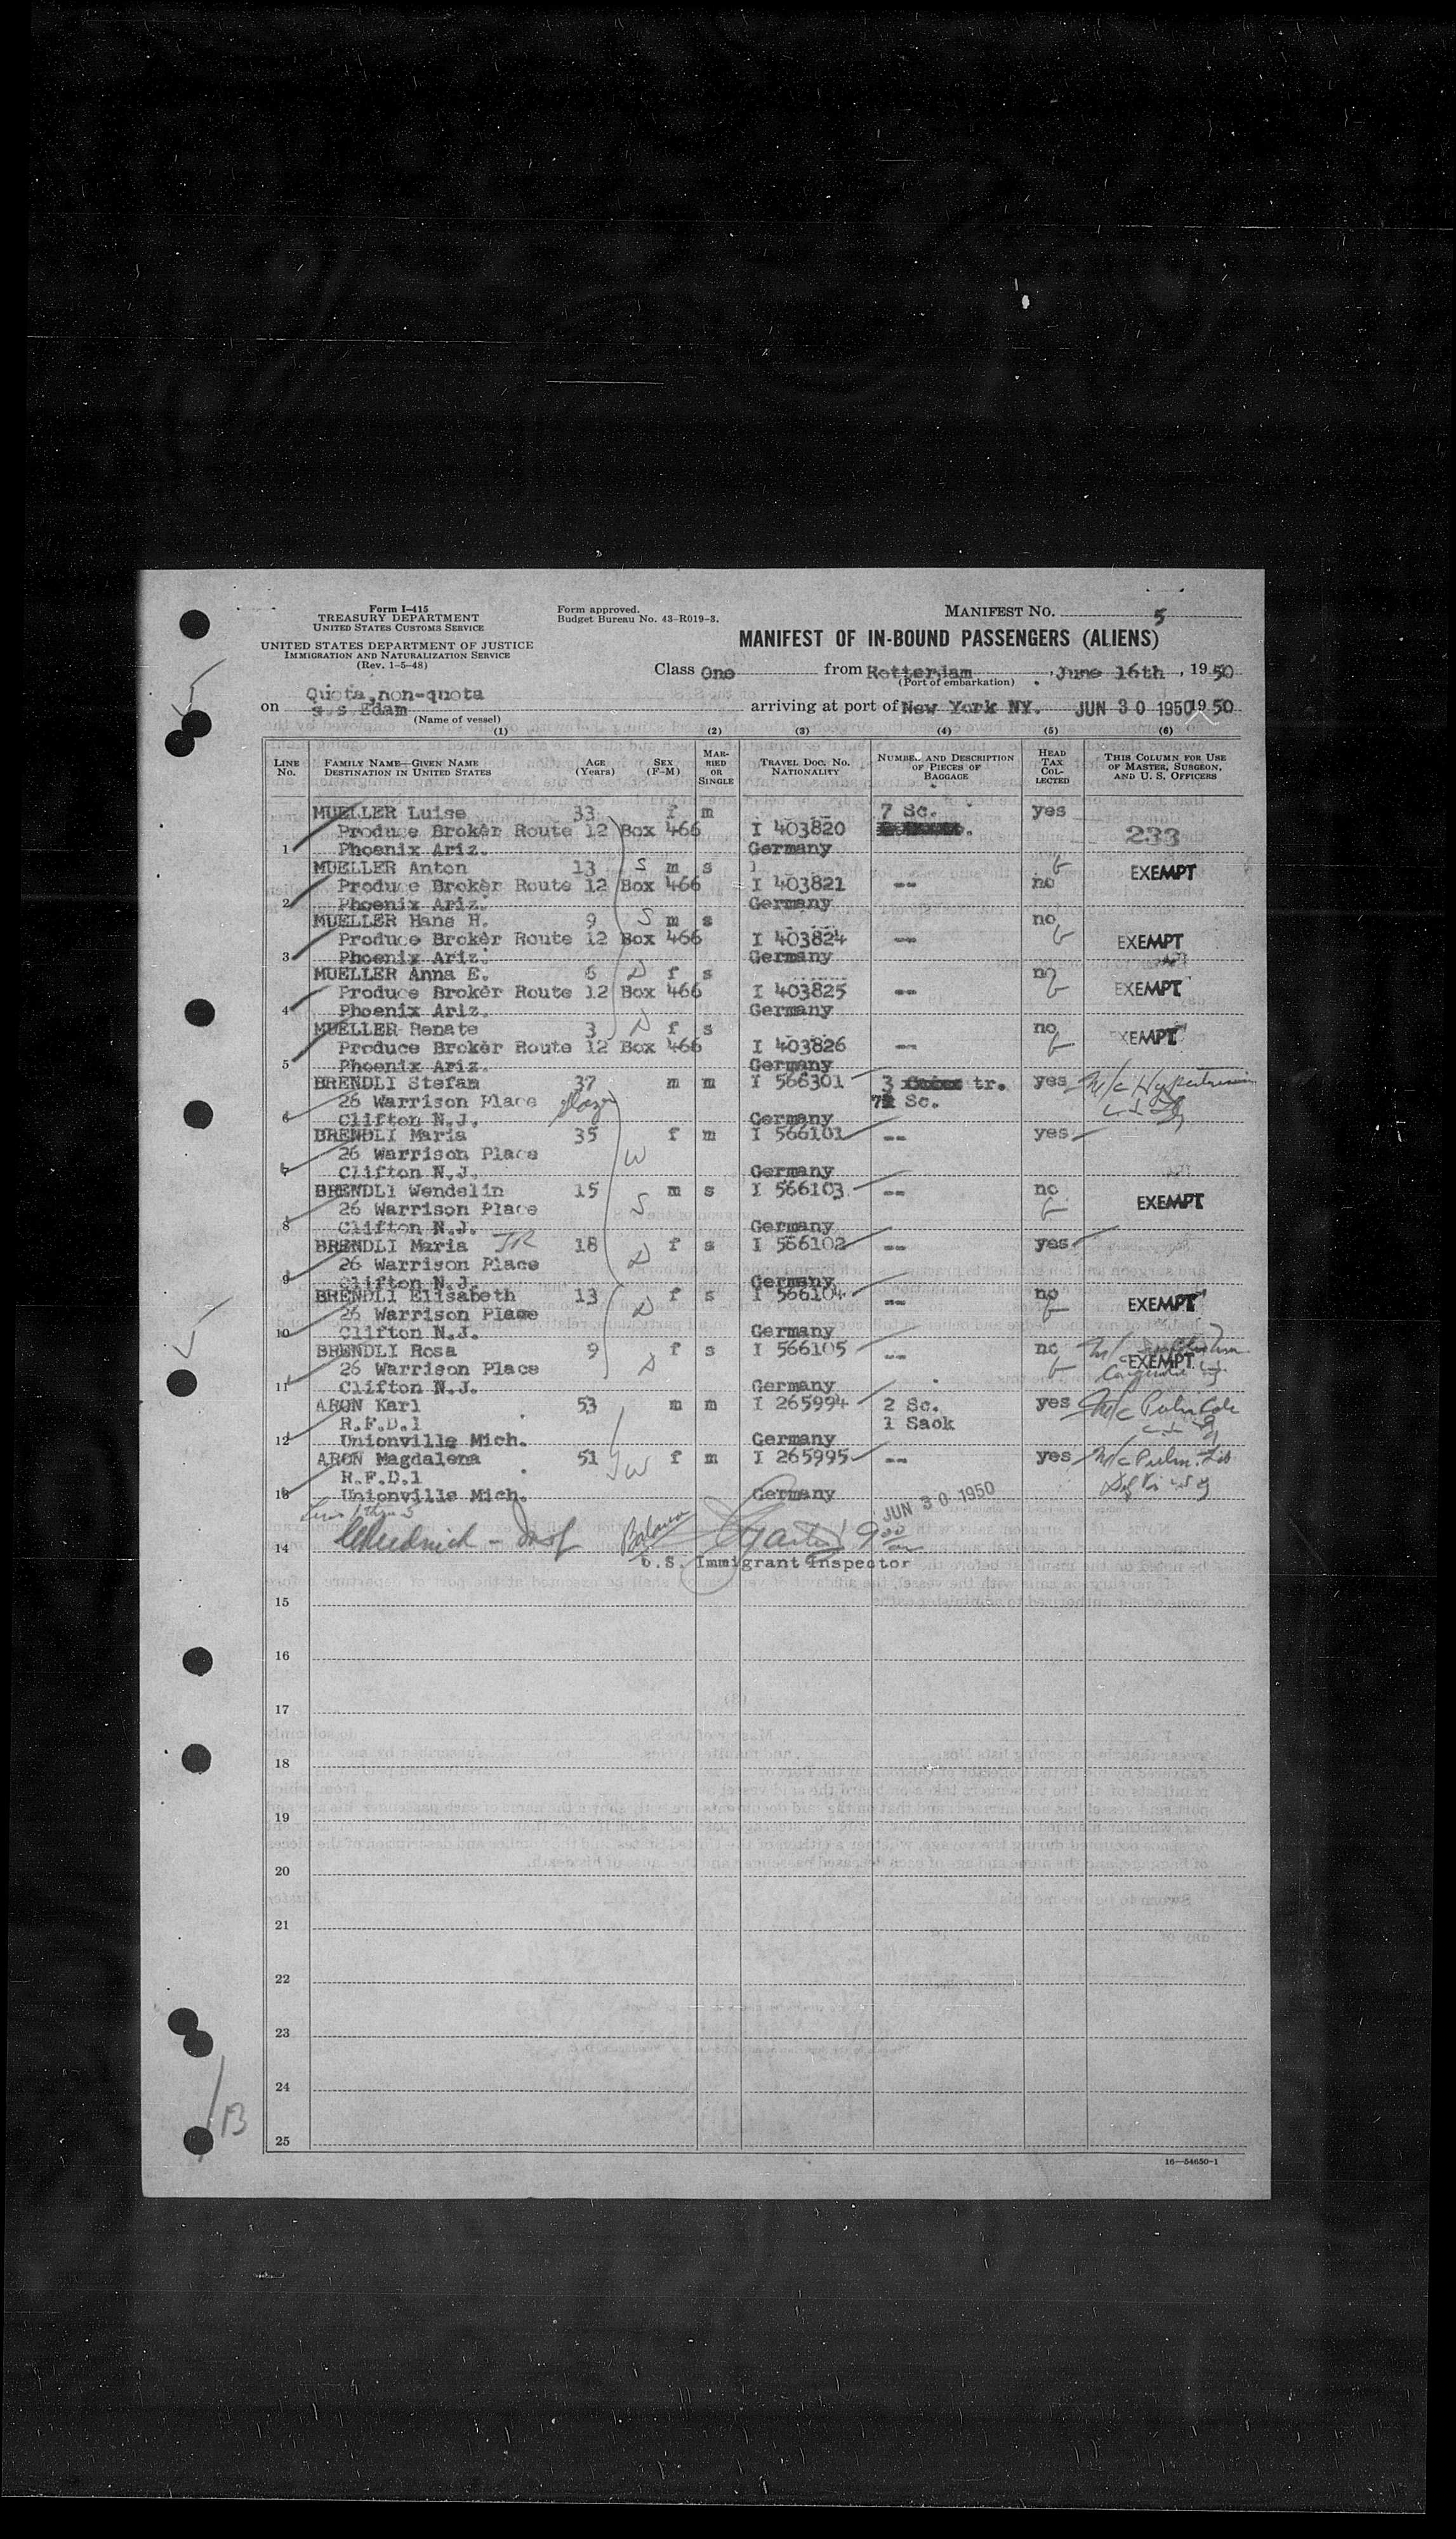 Form I-415
TREASURY DEPARTMENT
UNITED STATES CUSTOMS SERVICE
UNITED STATES DEPARTMENT OF JUSTICE
IMMIGRATION AND NATURALIZATION SERVICE
(Rev. 1-5-48)
Form approved.
Budget Bureau No. 43-R019-3.
MANIFEST NO. 5
MANIFEST OF IN-BOUND PASSENGERS (ALIENS)
Class One from Rotterdam, June 16th, 1950
(Port of embarkation)
Quota, non-quota
on s.s Edam arriving at port of New York NY. JUN 30 1950 1950
(Name of vessel)
(1) (2) (3) (4) (5) (6)
LINE NO. FAMILY NAME—GIVEN NAME DESTINATION IN UNITED STATES AGE (Years) SEX (F-M) MARRIED OR SINGLE TRAVEL DOC. NO. NATIONALITY NUMBER AND DESCRIPTION OF PIECES OF BAGGAGE HEAD TAX COLLECTED THIS COLUMN FOR USE OF MASTER, SURGEON, AND U. S. OFFICERS
MUELLER Luise 33 f m 7 Sc. yes
Produce Broker Route 12 Box 466 I 403820 233
1 Phoenix Ariz. Germany
MUELLER Anton 13 S m s EXEMPT
Produce Broker Route 12 Box 466 I 403821 -- no
2 Phoenix Ariz. Germany
MUELLER Hans H. 9 S m s no
Produce Broker Route 12 Box 466 I 403824 -- EXEMPT
3 Phoenix Ariz. Germany
MUELLER Anna E. 6 D f s no
Produce Broker Route 12 Box 466 I 403825 -- EXEMPT
4 Phoenix Ariz. Germany
MUELLER Renate 3 D f s no EXEMPT
Produce Broker Route 12 Box 466 I 403826 --
5 Phoenix Ariz. Germany
BRENDLI Stefan 37 m m I 566301 3 tr. yes M/c
26 Warrison Place Sc.
6 Clifton N.J. Germany
BRENDLI Maria 35 f m I 566101 -- yes
26 Warrison Place W
7 Clifton N.J. Germany
BRENDLI Wendelin 15 m s I 566103 -- no EXEMPT
26 Warrison Place S
8 Clifton N.J. Germany
BRENDLI Maria JR 18 f s I 566102 -- yes
26 Warrison Place D
9 Clifton N.J. Germany
BRENDLI Elisabeth 13 f s I 566104 -- no EXEMPT
26 Warrison Place D
10 Clifton N.J. Germany
BRENDLI Rosa 9 f s I 566105 -- no M/c
26 Warrison Place D EXEMPT
11 Clifton N.J. Germany
ARON Karl 53 m m I 265994 2 Sc. yes M/c
R.F.D.1 1 Sack
12 Unionville Mich. Germany
ARON Magdalena 51 W f m I 265995 -- yes M/c
R.F.D.1
13 Unionville Mich. Germany
JUN 30 1950
14
U.S. Immigrant Inspector
15
16
17
18
19
20
21
22
23
24
25
13
16—54650-1